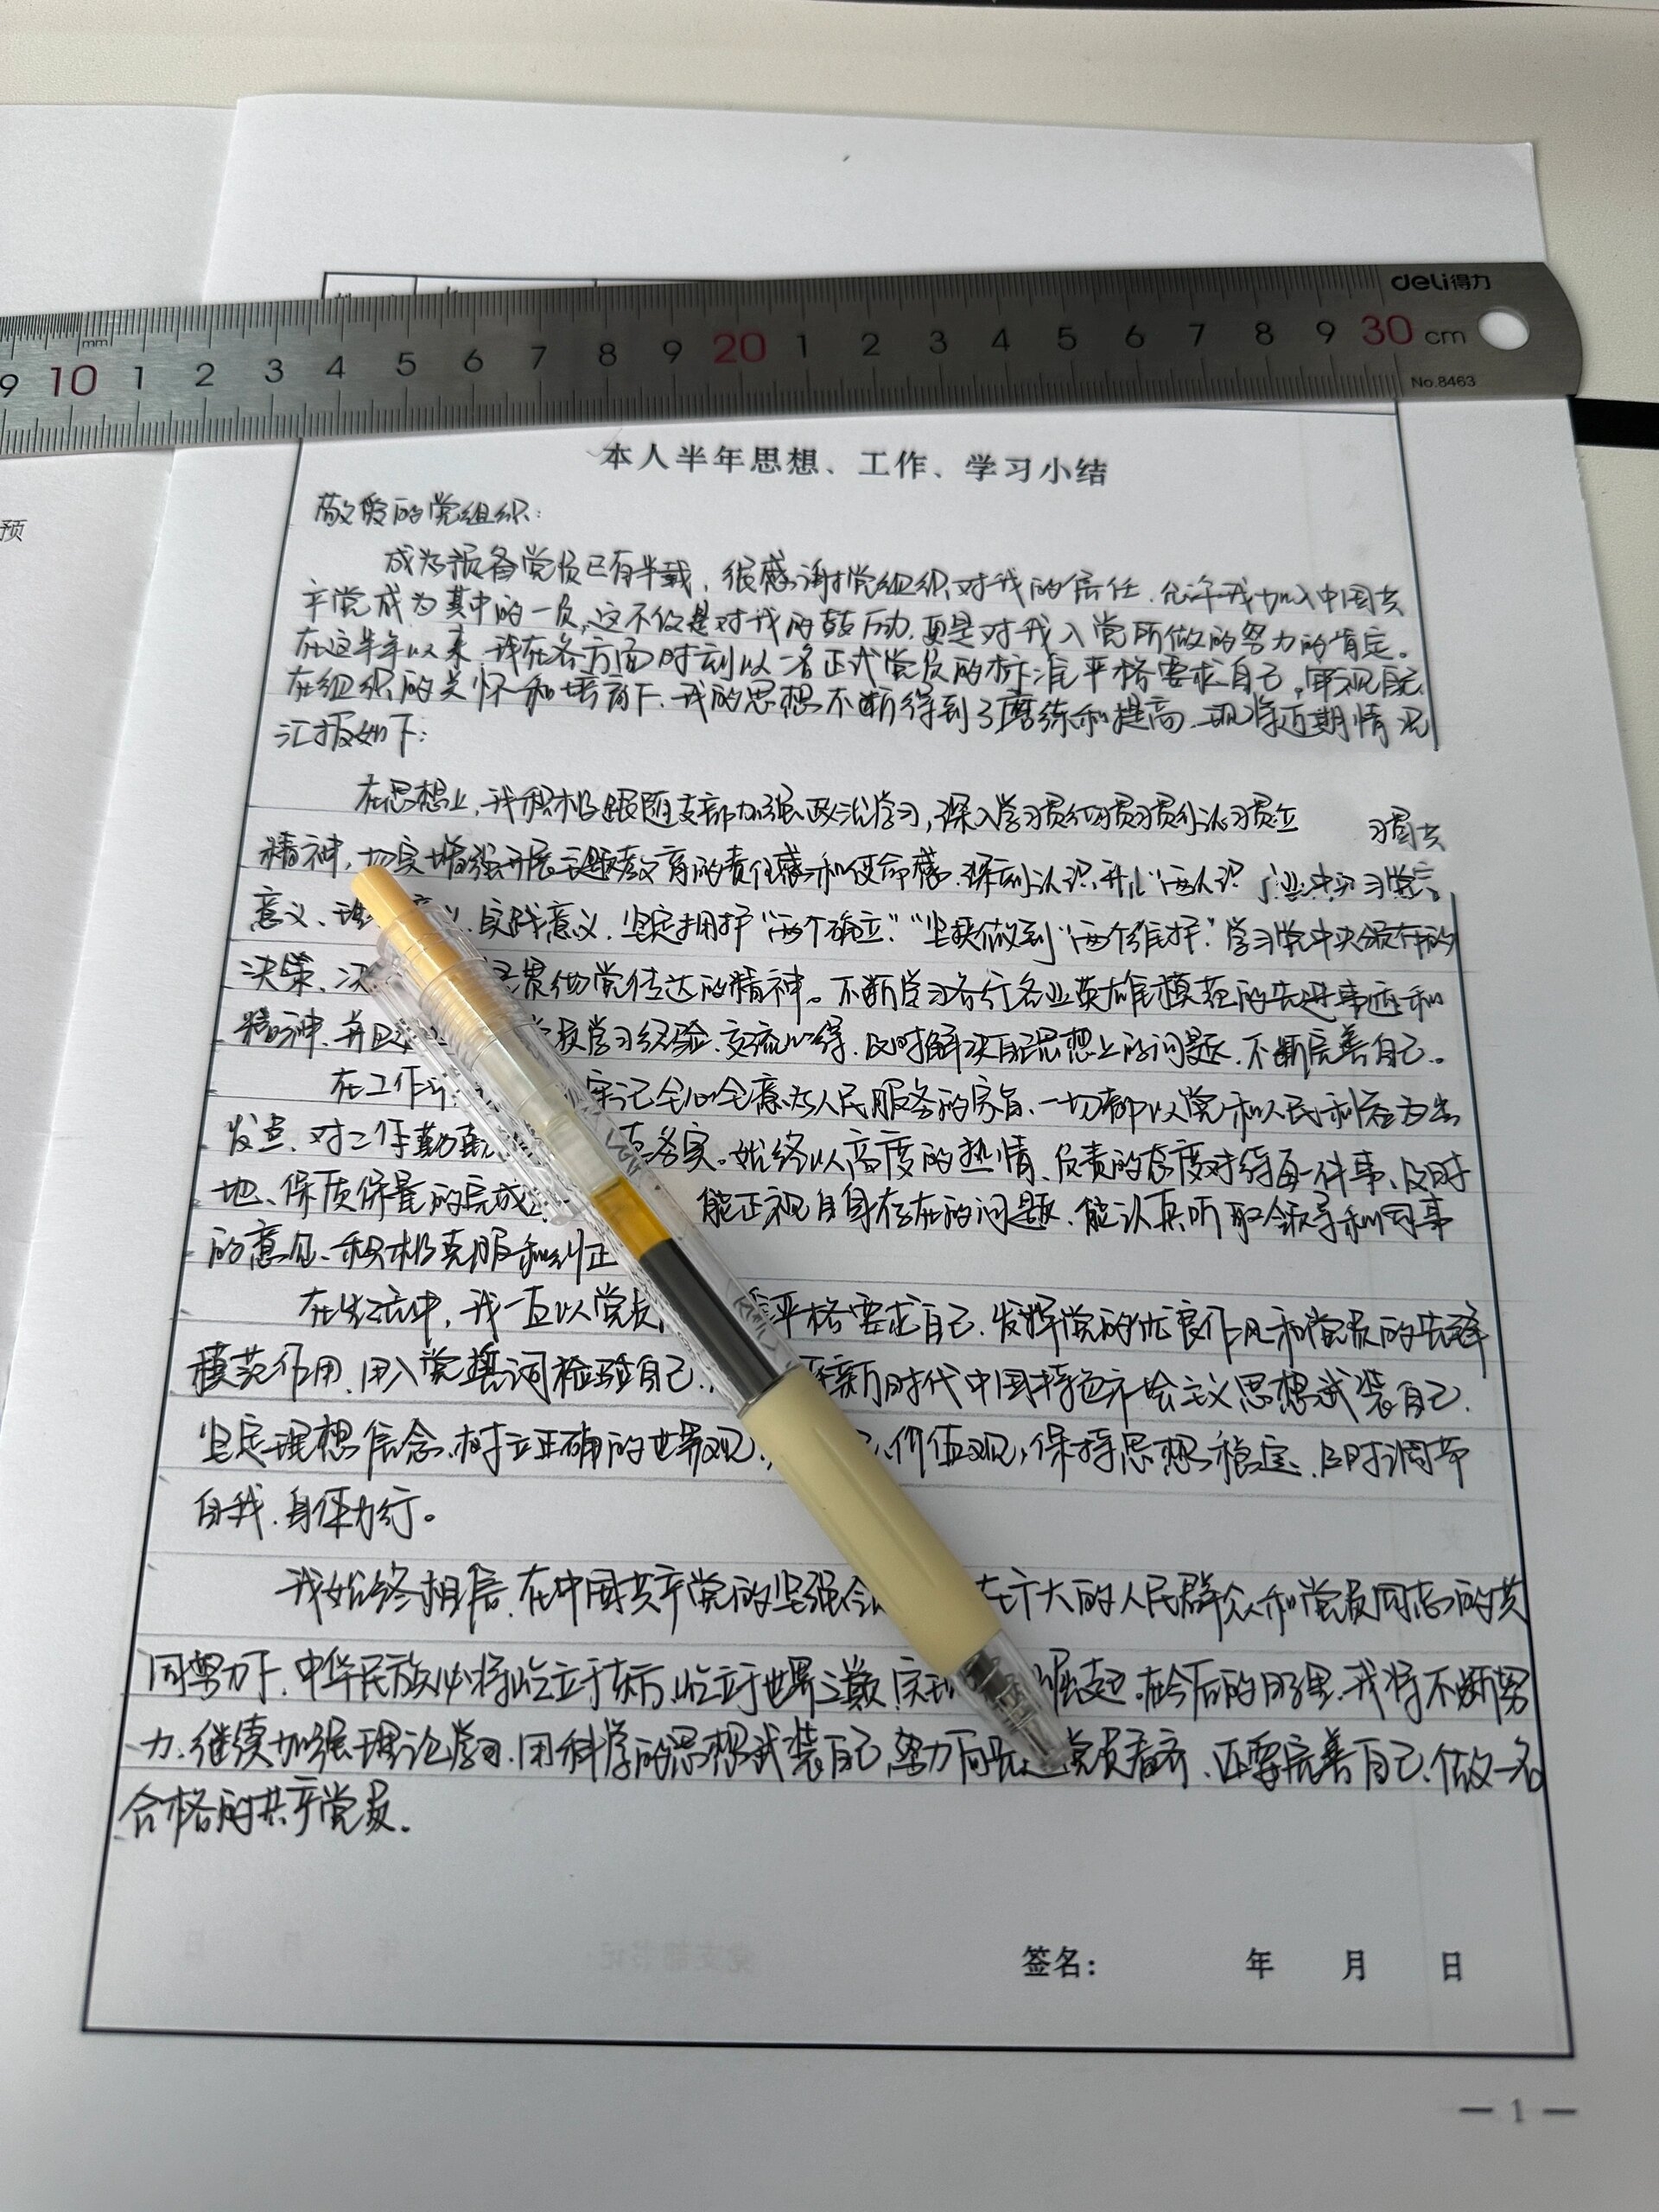 deli得力
mm
9 10 1 2 3 4 5 6 7 8 9 20 1 2 3 4 5 6 7 8 9 30 cm
No.8463
预
本人半年思想、工作、学习小结
敬爱的党组织:
成为预备党员已有半载,很感谢党组织对我的信任,允许我加入中国共
产党成为其中的一员,这不仅是对我的鼓励,更是对我入党所做的努力的肯定。
在这半年以来,我在各方面时刻以一名正式党员的标准严格要求自己,
在组织的关怀和培育下,我的思想不断得到了磨练和提高,现将近期情况
汇报如下:
在思想上,我积极跟随支部加强政治学习,深入学习贯彻
精神,切实增强开展主题教育的责任感和使命感,深刻认识
意义、实践意义,坚定拥护“两个确立”“坚决做到“两个维护”学习党中央颁布的
决策、决 贯彻党传达的精神。不断学习各行各业英雄模范的先进事迹和
精神,并且 学习经验,交流心得,及时解决自己思想上的问题,不断完善自己。
在工作 牢记全心全意为人民服务的宗旨,一切都以党和人民利益为出
发点,对工作勤勤 真务实。始终以高度的热情、负责的态度对待每一件事,及时
地、保质保量的完成 能正视自身存在的问题,能认真听取领导和同事
的意见,积极克服和纠正
在生活中,我一直以党员 严格要求自己,发挥党的优良作风和党员的先锋
模范作用,用入党誓词检验自己, 新时代中国特色社会主义思想武装自己,
坚定理想信念,树立正确的世界观, 价值观,保持思想稳定,及时调节
自我,身体力行。
我始终相信,在中国共产党的坚强领 在广大的人民群众和党员同志的共
同努力下,中华民族必将屹立于东方,屹立于世界之巅,实现 崛起。在今后的日子里,我将不断努
力,继续加强理论学习,用科学的思想武装自己,努力向先进党员看齐,还要完善自己,做一名
合格的共产党员。
签名: 年 月 日
— 1 —